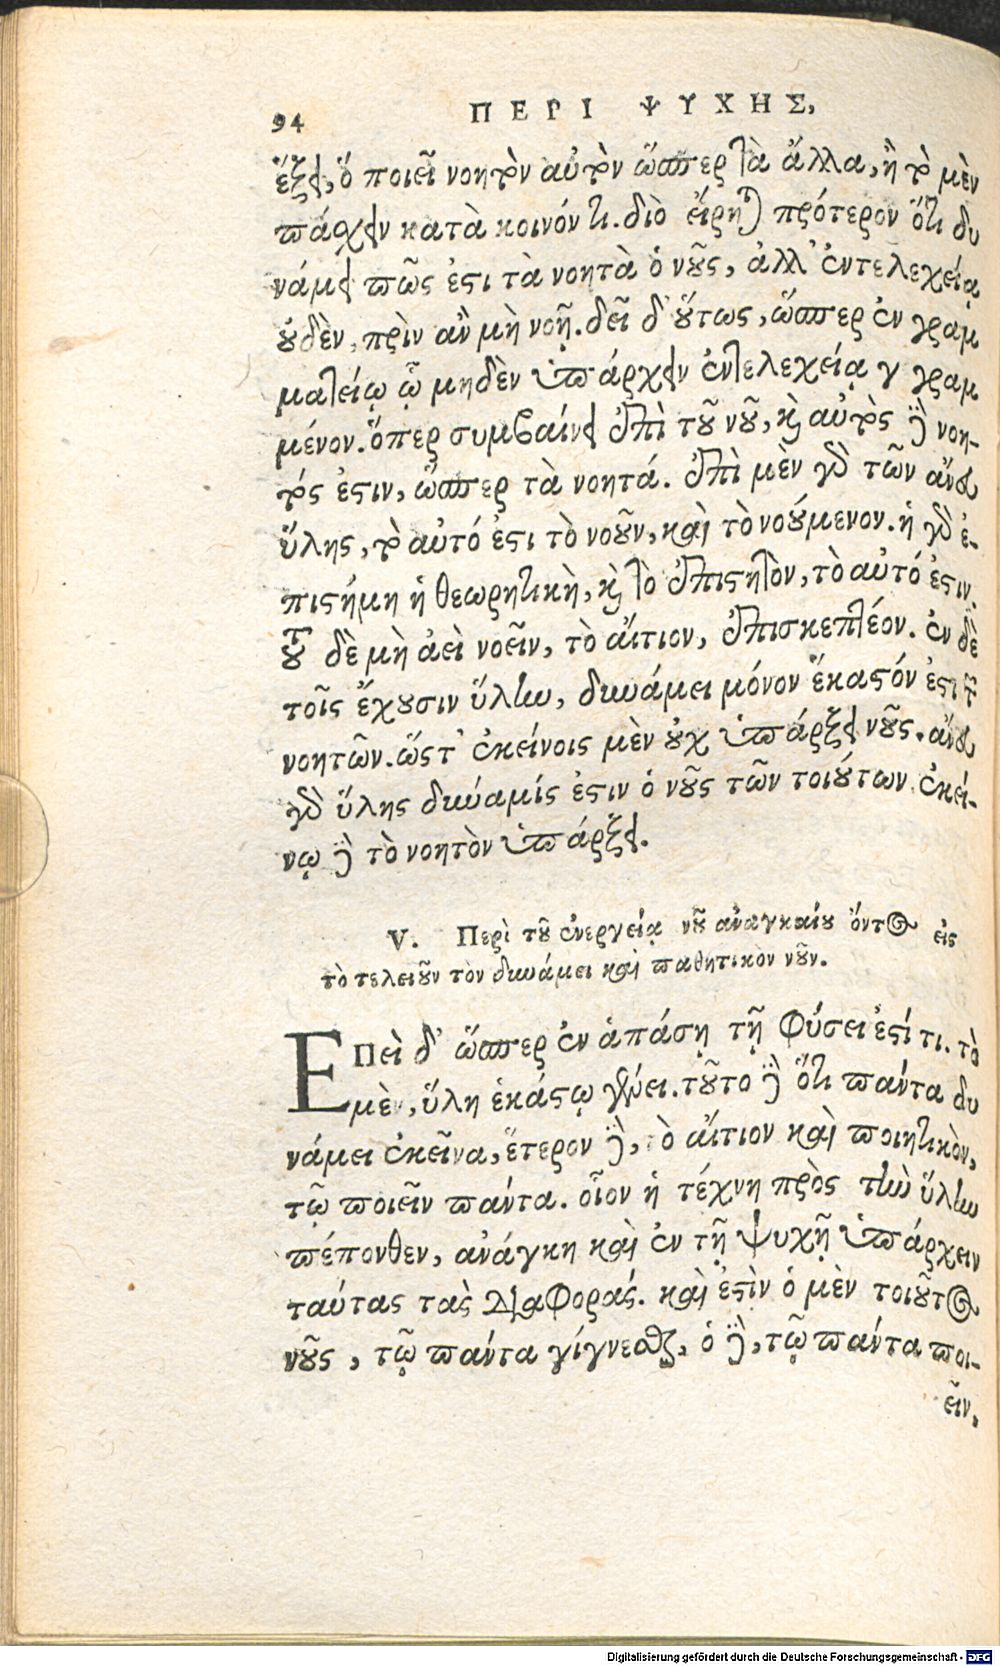 94 ΠΕΡΙ ΨΥΧΗΣ,
ἕξει, ὃ ποιεῖ νοητὸν αὐτὸν ὥσπερ τὰ ἄλλα, ἢ τὸ μὲν
πάσχειν κατὰ κοινόν τι. διὸ εἴρηται πρότερον ὅτι δυ
νάμει πῶς ἐστι τὰ νοητὰ ὁ νοῦς, ἀλλ' ἐντελεχείᾳ
οὐδὲν, πρὶν ἂν μὴ νοῇ. δεῖ δ' οὕτως, ὥσπερ ἐν γραμ
ματείῳ ᾧ μηδὲν ὑπάρχειν ἐντελεχείᾳ γεγραμ
μένον. ὅπερ συμβαίνει ἐπὶ τοῦ νοῦ, καὶ αὐτὸς δὲ νοη-
τός ἐστιν, ὥσπερ τὰ νοητά. ἐπὶ μὲν γὰρ τῶν ἄνευ
ὕλης, τὸ αὐτό ἐστι τὸ νοοῦν, καὶ τὸ νοούμενον. ἡ γὰρ ἐ-
πιστήμη ἡ θεωρητικὴ, καὶ τὸ ἐπιστητὸν, τὸ αὐτό ἐστιν.
τοῦ δὲ μὴ ἀεὶ νοεῖν, τὸ αἴτιον, ἐπισκεπτέον. ἐν δὲ
τοῖς ἔχουσιν ὕλην, δυνάμει μόνον ἕκαστόν ἐστι τῶν
νοητῶν. ὥστ' ἐκείνοις μὲν οὐχ ὑπάρξει νοῦς. ἄνευ
γὰρ ὕλης δύναμίς ἐστιν ὁ νοῦς τῶν τοιούτων. ἐκεί-
νῳ δὲ τὸ νοητὸν ὑπάρξει.
V. Περὶ τοῦ ἐνεργείᾳ νοῦ ἀναγκαίου ὄντος εἰς
τὸ τελειοῦν τὸν δυνάμει καὶ παθητικὸν νοῦν.
Επεὶ δ' ὥσπερ ἐν ἁπάσῃ τῇ φύσει ἐστί τι. τὸ
μὲν, ὕλη ἑκάστῳ γένει. τοῦτο δὲ ὅτι πάντα δυ
νάμει ἐκεῖνα, ἕτερον δὲ, τὸ αἴτιον καὶ ποιητικὸν,
τῷ ποιεῖν πάντα. οἷον ἡ τέχνη πρὸς τὴν ὕλην
πέπονθεν, ἀνάγκη καὶ ἐν τῇ ψυχῇ ὑπάρχειν
ταύτας τὰς διαφοράς. καὶ ἐστὶν ὁ μὲν τοιοῦτος
νοῦς, τῷ πάντα γίγνεσθαι, ὁ δὲ, τῷ πάντα ποι-
εῖν,
Digitalisierung gefördert durch die Deutsche Forschungsgemeinschaft - DFG